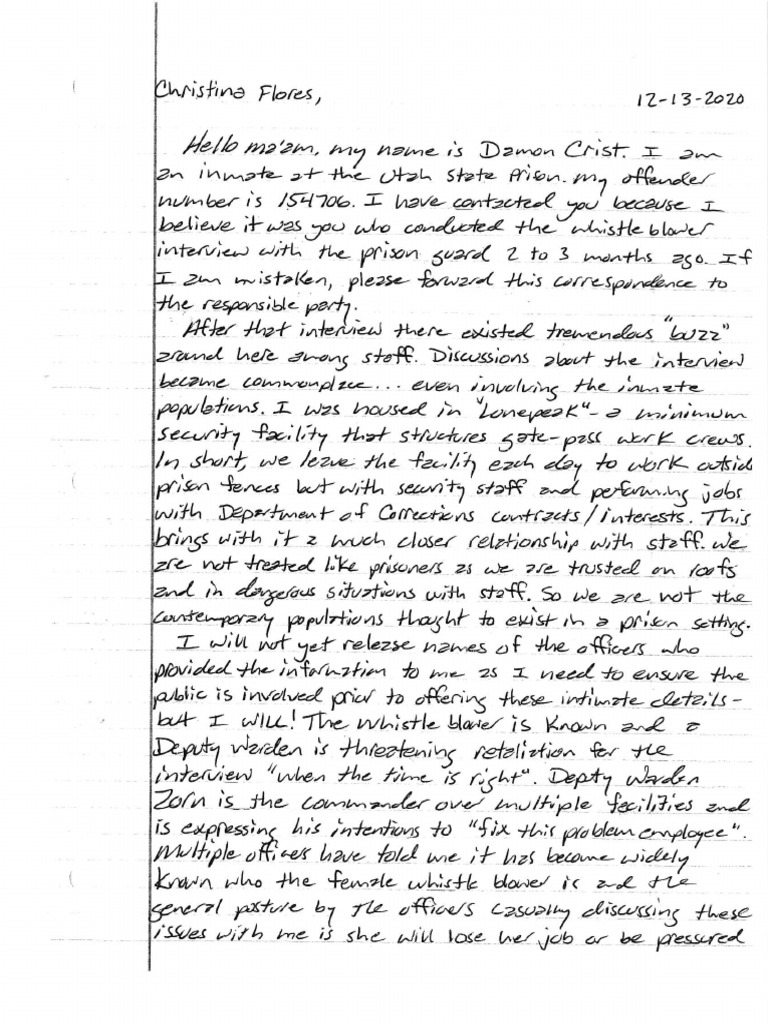 Christina Flores,
12-13-2020
Hello ma'am, my name is Damon Crist. I am
an inmate at the Utah State Prison. my offender
number is 154706. I have contacted you because I
believe it was you who conducted the whistle blower
interview with the prison guard 2 to 3 months ago. If
I am mistaken, please forward this correspondence to
the responsible party.
After that interview there existed tremendous "buzz"
around here among staff. Discussions about the interview
became commonplace... even involving the inmate
populations. I was housed in "Lonepeak" - a minimum
security facility that structures gate-pass work crews.
In short, we leave the facility each day to work outside
prison fences but with security staff and performing jobs
with Department of Corrections contracts/interests. This
brings with it a much closer relationship with staff. We
are not treated like prisoners as we are trusted on roofs
and in dangerous situations with staff. So we are not the
contemporary populations thought to exist in a prison setting.
I will not yet release names of the officers who
provided the information to me as I need to ensure the
public is involved prior to offering these intimate details -
but I WILL! The whistle blower is known and a
Deputy Warden is threatening retaliation for the
interview "when the time is right". Deputy Warden
Zorn is the commander over multiple facilities and
is expressing his intentions to "fix this problem employee".
Multiple officers have told me it has become widely
known who the female whistle blower is and the
general posture by the officers casually discussing these
issues with me is she will lose her job or be pressured